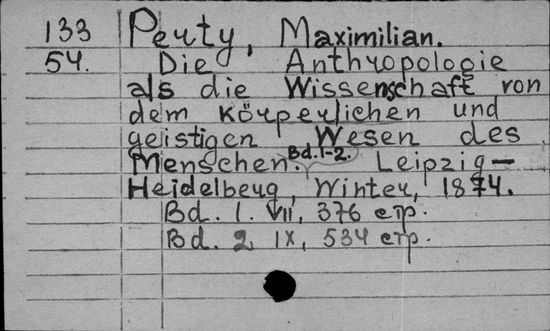 133 Perty, Maximilian.
54. Die Anthropologie
als die Wissenschaft von
dem körperlichen und
geistigen Wesen des
Menschen. Bd. 1-2. Leipzig-
Heidelberg, Winter, 1874.
Bd. 1. VII, 376 стр.
Bd. 2. IX, 534 стр.